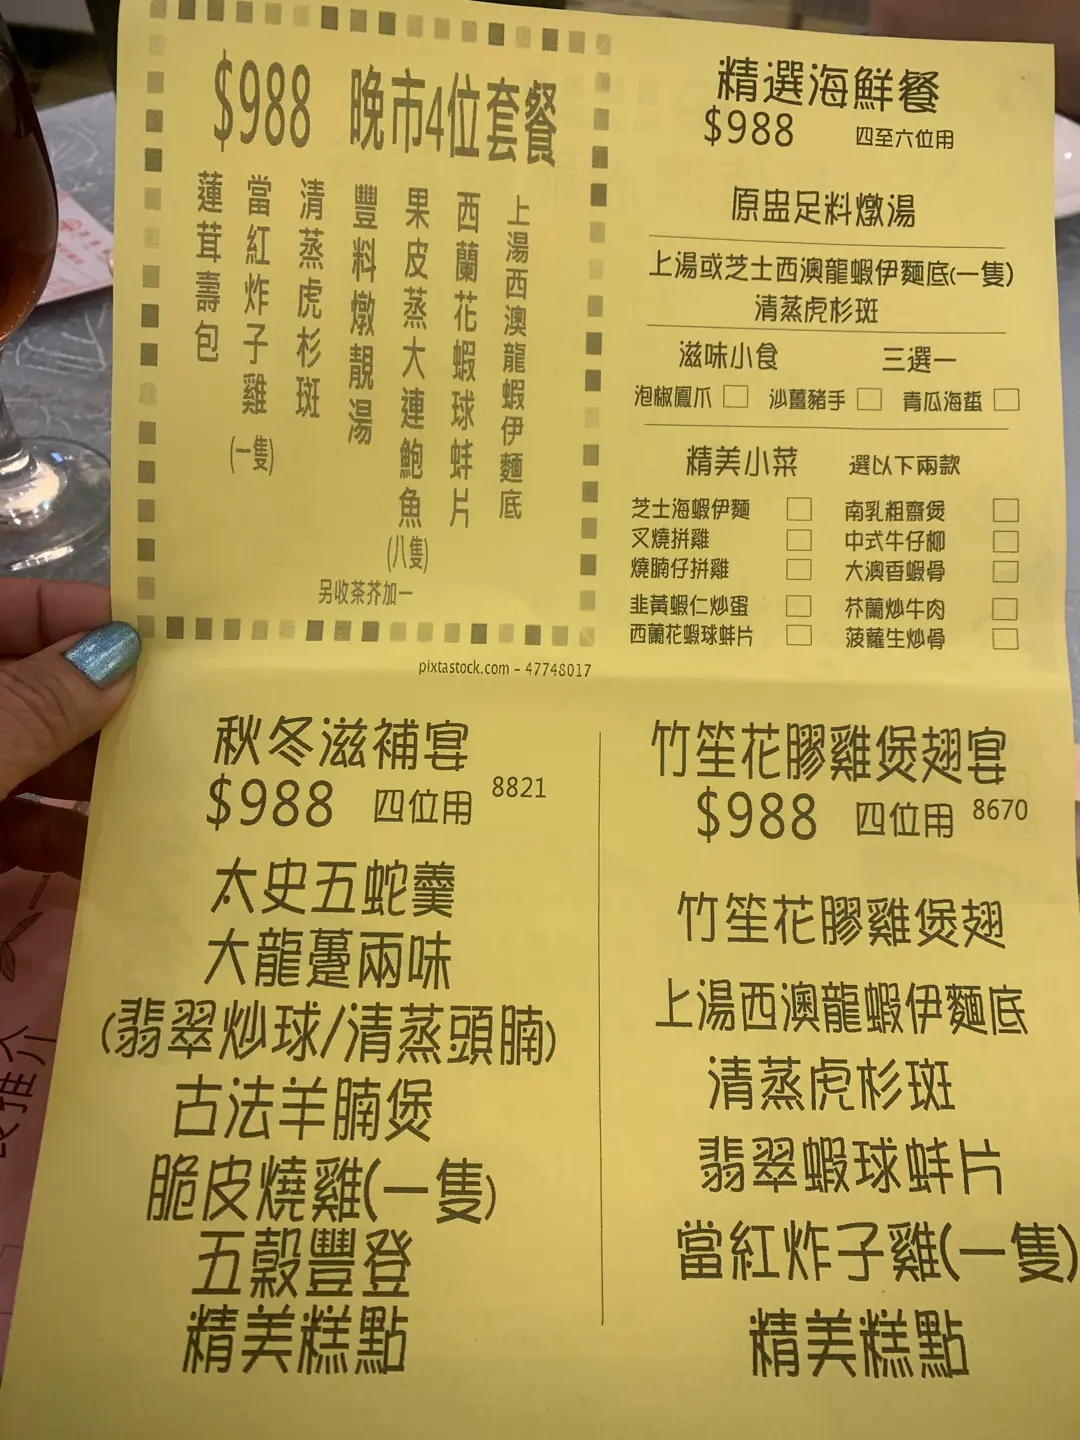 $988 晚市4位套餐
上湯西澳龍蝦伊麵底
西蘭花蝦球蚌片
果皮蒸大連鮑魚(八隻)
豐料燉靚湯
清蒸虎杉斑
當紅炸子雞(一隻)
蓮茸壽包
另收茶芥加一
pixtastock.com - 47748017
精選海鮮餐
$988 四至六位用
原盅足料燉湯
上湯或芝士西澳龍蝦伊麵底(一隻)
清蒸虎杉斑
滋味小食 三選一
泡椒鳳爪 沙薑豬手 青瓜海蜇
精美小菜 選以下兩款
芝士海蝦伊麵 南乳粗齋煲
叉燒拼雞 中式牛仔柳
燒腩仔拼雞 大澳香蝦骨
韭黃蝦仁炒蛋 芥蘭炒牛肉
西蘭花蝦球蚌片 菠蘿生炒骨
秋冬滋補宴
$988 四位用 8821
太史五蛇羹
大龍躉兩味
(翡翠炒球/清蒸頭腩)
古法羊腩煲
脆皮燒雞(一隻)
五穀豐登
精美糕點
竹笙花膠雞煲翅宴
$988 四位用 8670
竹笙花膠雞煲翅
上湯西澳龍蝦伊麵底
清蒸虎杉斑
翡翠蝦球蚌片
當紅炸子雞(一隻)
精美糕點